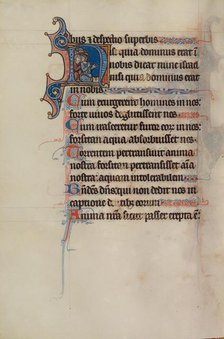 bus et despectio superbis
Nisi quia dominus erat in
nobis dicat nunc israel
nisi quia dominus erat
in nobis
Cum exurgerent homines in nos
forte vivos deglutissent nos
Cum irasceretur furor eorum in nos
forsitan aqua absorbuisset nos
Torrentem pertransivit anima
nostra forsitan pertransisset anima
nostra aquam intolerabilem
dominus qui non dedit nos in
captione dentibus eorum
Anima nostra sicut passer erepta est